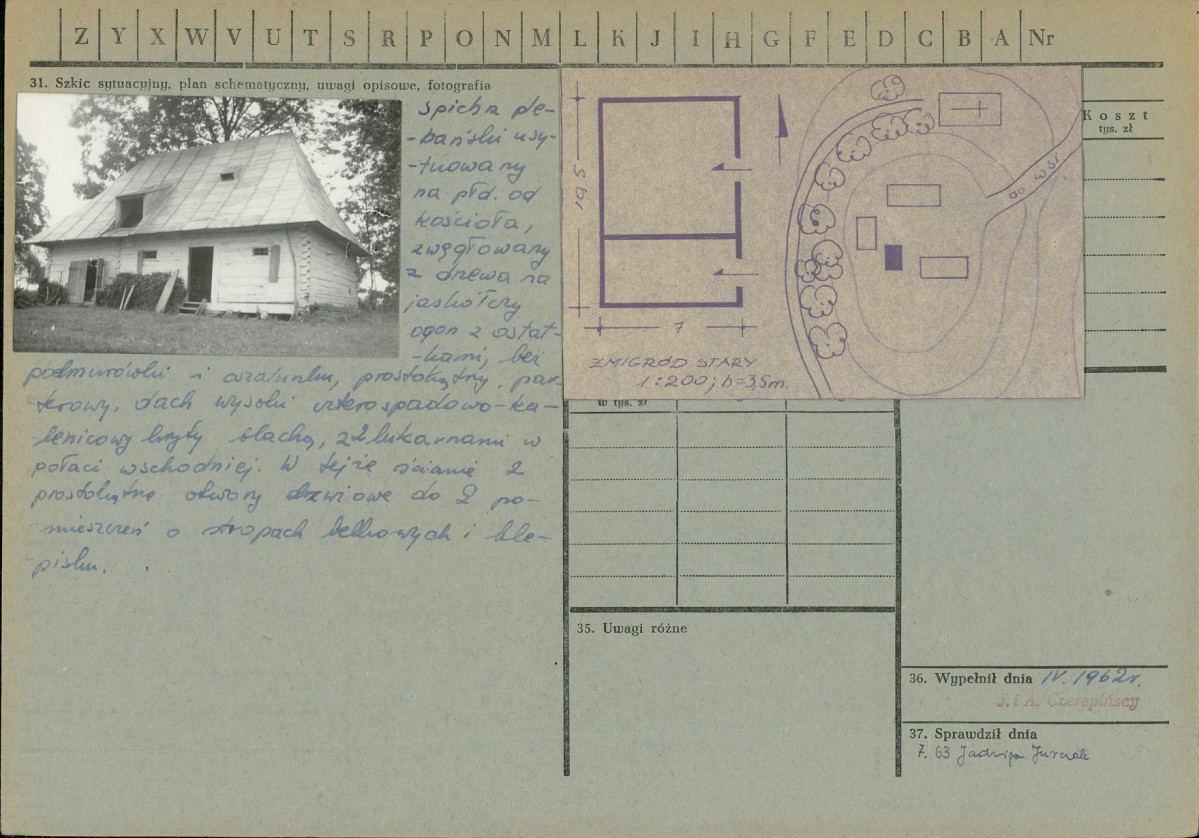 Z Y X W V U T S R P O N M L K J I H G F E D C B A Nr
31. Szkic sytuacyjny, plan schematyczny, uwagi opisowe, fotografia
Spichrz ple-
-bański usy-
-tuowany
na płd. od
kościoła,
zwęgłowany
z drzewa na
jaskółczy
ogon z ostat-
-kami, bez
podmurówki i oszalunku, prostokątny, par-
-terowy, dach wysoki czterospadowo-ka-
lenicowy kryty blachą, z 2 lukarnami w
połaci wschodniej. W tejże ścianie 2
prostokątne otwory drzwiowe do 2 po-
-mieszczeń o stropach belkowych i kle-
-pisku.
10,5
7
ŻMIGRÓD STARY
1:200; h=3,5m.
do wsi
Koszt
tys. zł
w tys. zł
35. Uwagi różne
36. Wypełnił dnia IV. 1962r.
J. i A. Czerepińscy
37. Sprawdził dnia
7. 63 Jadwiga